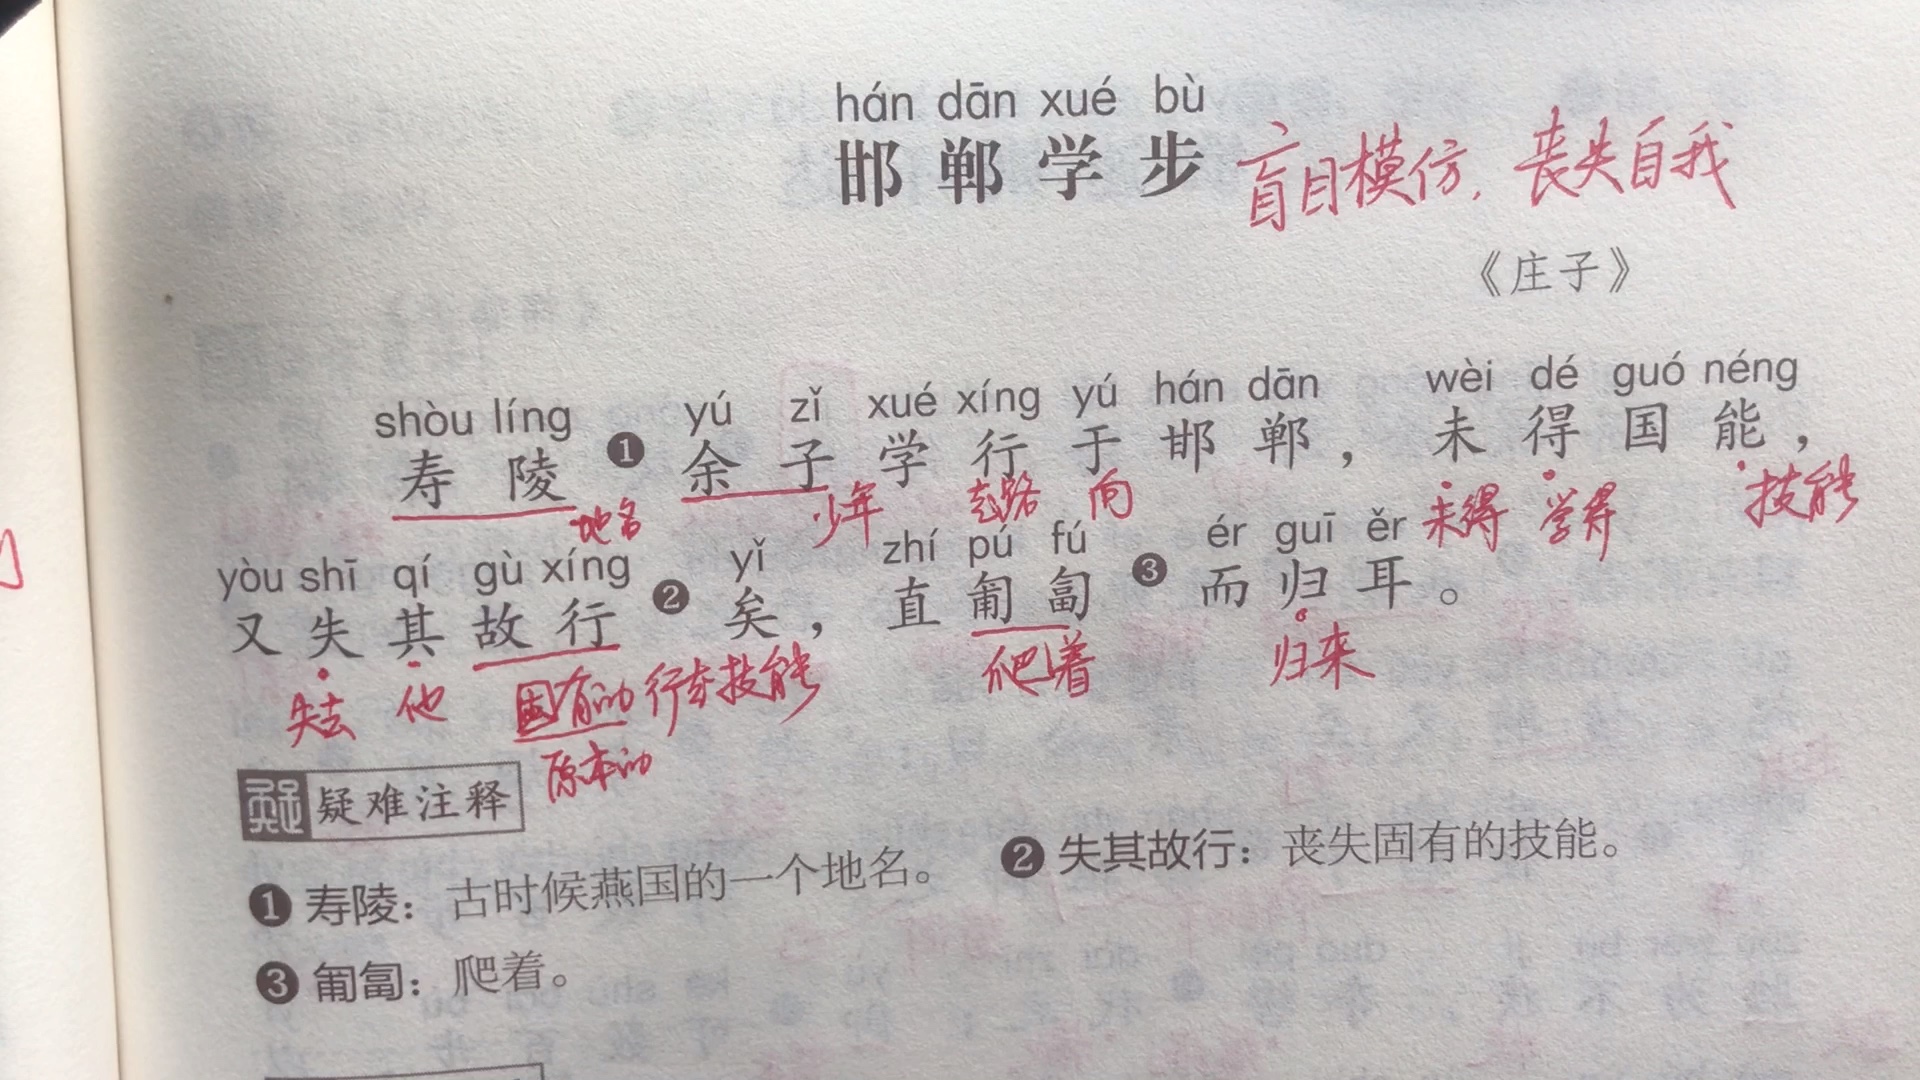 hán dān xué bù
邯郸学步 盲目模仿，丧失自我
《庄子》
shòu líng yú zǐ xué xíng yú hán dān wèi dé guó néng
寿陵❶余子学行于邯郸，未得国能，
地名 少年 走路 向 未得 学得 技能
yòu shī qí gù xíng yǐ zhí pú fú ér guī ěr
又失其故行❷矣，直匍匐❸而归耳。
失去 他 固有的 行走技能 爬着 归来
原本的
疑难注释
❶ 寿陵：古时候燕国的一个地名。 ❷ 失其故行：丧失固有的技能。
❸ 匍匐：爬着。